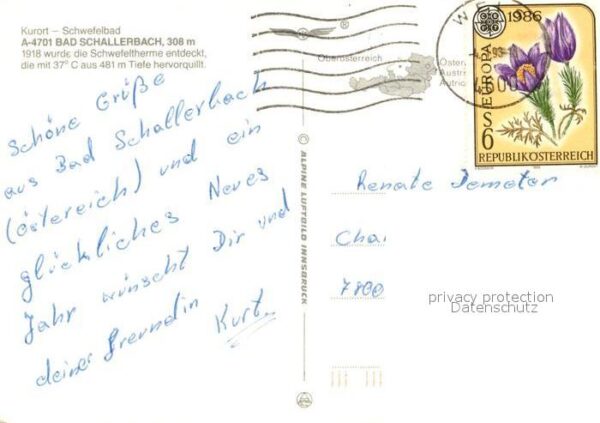 Kurort – Schwefelbad
A-4701 BAD SCHALLERBACH, 308 m
1918 wurde die Schwefeltherme entdeckt,
die mit 37° C aus 481 m Tiefe hervorquillt.
Schöne Grüße
aus Bad Schallerbach
(österreich) und ein
glückliches Neues
Jahr wünscht Dir und
deiner Freundin
Kurt.
ALPINE LUFTBILD INNSBRUCK
Oberösterreich
WELS
4600
1986
EUROPA
S 6
REPUBLIK ÖSTERREICH
Renate Demeter
Chai
7800
privacy protection
Datenschutz